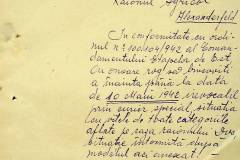 Raionul Agricol
Alexanderfeld
In conformitate cu ordi-
nul nº 100404/942 al Coman-
damentului Etapelor de Est,
Cu onoare rog să binevoiți
a înainta până la data
de 10 Martie 1942, irevocabil
prin curier special, situația
cu vitele de toate categoriile
aflate pe raza raionului Dvs.
Situație întocmită după
modelul aci anexat. –